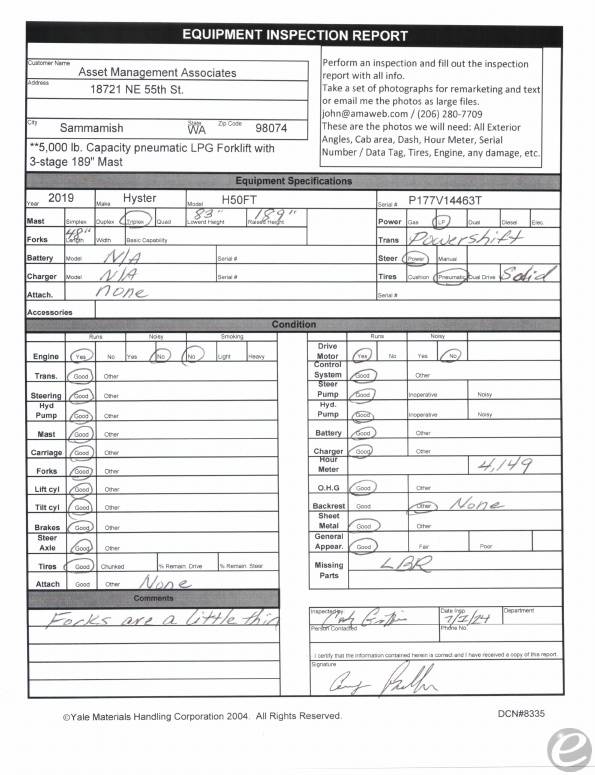 EQUIPMENT INSPECTION REPORT
Customer Name
Asset Management Associates
Address
18721 NE 55th St.
City State Zip Code
Sammamish WA 98074
**5,000 lb. Capacity pneumatic LPG Forklift with
3-stage 189" Mast
Perform an inspection and fill out the inspection
report with all info.
Take a set of photographs for remarketing and text
or email me the photos as large files.
john@amaweb.com / (206) 280-7709
These are the photos we will need: All Exterior
Angles, Cab area, Dash, Hour Meter, Serial
Number / Data Tag, Tires, Engine, any damage, etc.
Equipment Specifications
Year 2019 Make Hyster Model H50FT Serial # P177V14463T
Mast Simplex Duplex Triplex Quad 83" Lowerd Height 189" Raised Height Power Gas LP Dual Diesel Elec.
Forks 48" Length Width Basic Capability Trans Powershift
Battery Model N/A Serial # Steer Power Manual
Charger Model N/A Serial # Tires Cushion Pneumatic Dual Drive Solid
Attach. none Serial #
Accessories
Condition
Runs Noisy Smoking
Engine Yes No Yes No No Light Heavy
Trans. Good Other
Steering Good Other
Hyd
Pump Good Other
Mast Good Other
Carriage Good Other
Forks Good Other
Lift cyl Good Other
Tilt cyl Good Other
Brakes Good Other
Steer
Axle Good Other
Tires Good Chunked % Remain. Drive % Remain. Steer
Attach Good Other None
Comments
Forks are a little thin
Runs Noisy
Drive
Motor Yes No Yes No
Control
System Good Other
Steer
Pump Good Inoperative Noisy
Hyd.
Pump Good Inoperative Noisy
Battery Good Other
Charger Good Other
Hour
Meter 4,149
O.H.G Good Other
Backrest Good Other None
Sheet
Metal Good Other
General
Appear. Good Fair Poor
Missing
Parts LBR
Inspected by Date Insp. 7/1/24 Department
Person Contacted Phone No.
I certify that the information contained herein is correct and I have received a copy of this report.
Signature
©Yale Materials Handling Corporation 2004. All Rights Reserved.
DCN#8335
e